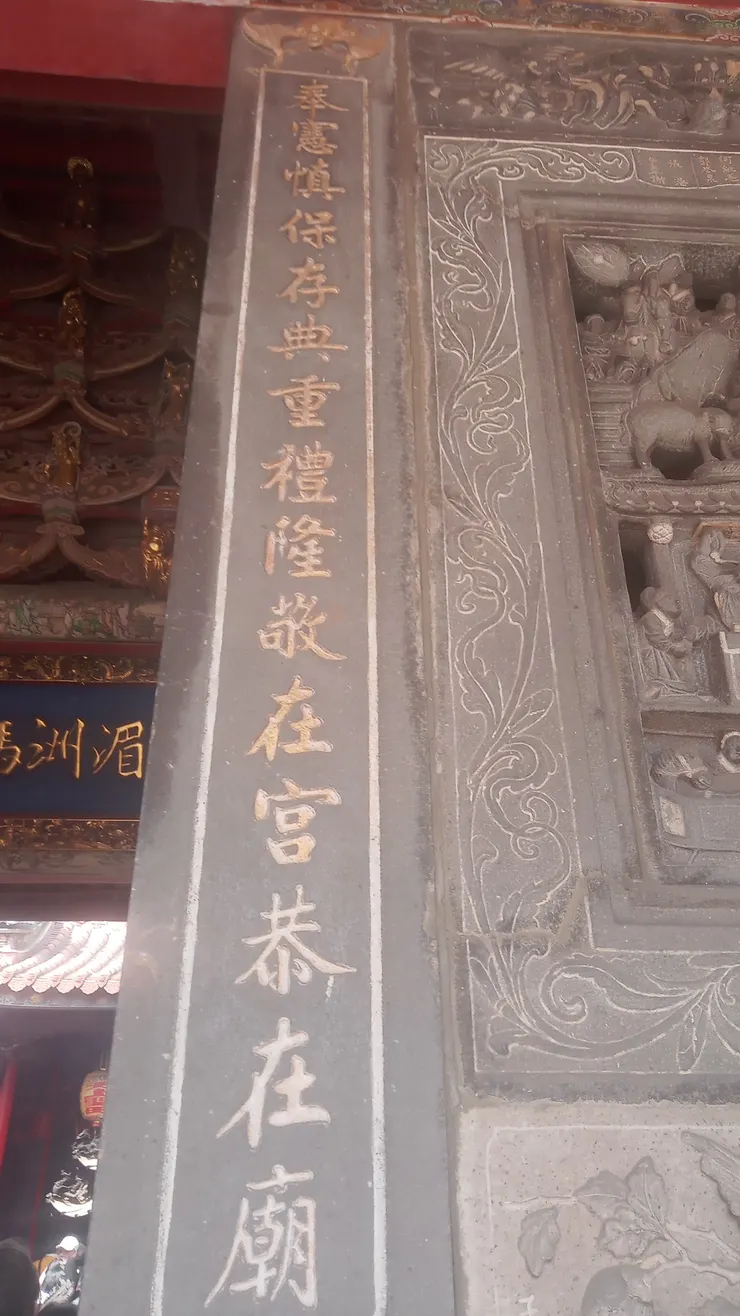 奉憲慎保存典重禮隆敬在宮恭在廟
湄洲媽